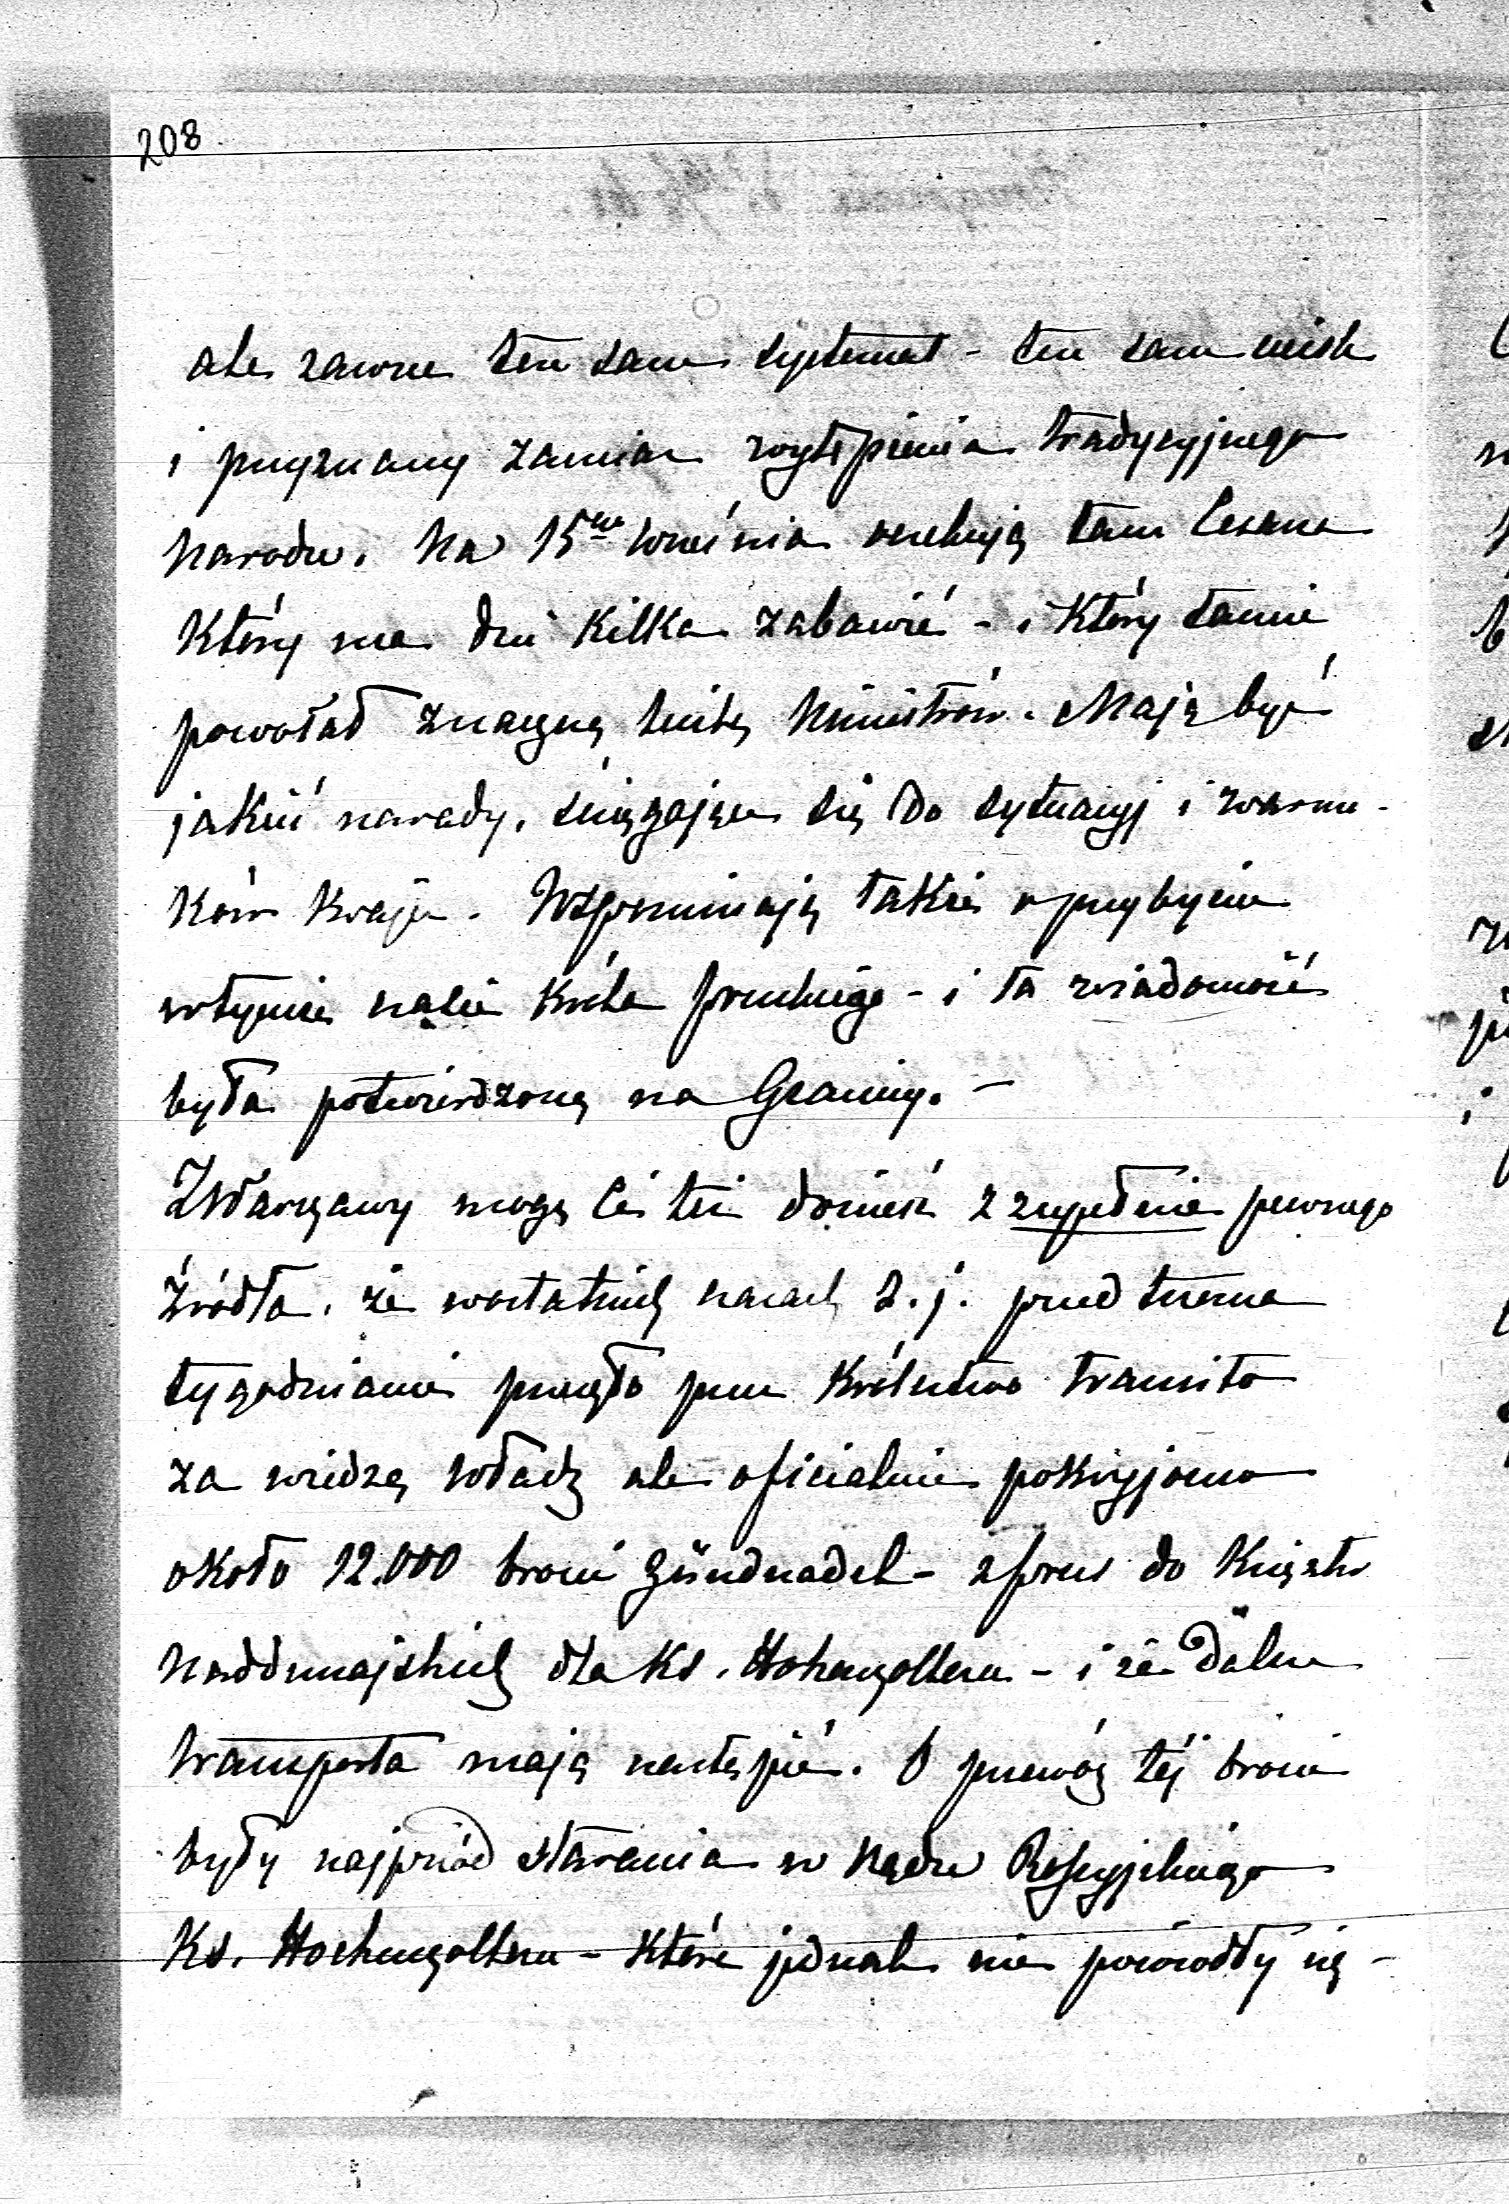 208
ale zawsze ten sam systemat - ten sam ucisk
i przyznany zamiar wytępienia tradycyjnego
narodu. Na 15go września oczekują tam Cesarza
który ma dni kilka zabawić - i który tamże
powołał znaczną liczbę Ministrów. Mają być
jakieś narady, ściągające się do sytuacyj i warun-
ków kraju. Wspominają także o przybyciu
w tymże czasie Króla pruskiego - i ta wiadomość
była potwierdzoną na Granicy. -
Z Warszawy mogę Ci też donieść z zupełnie pewnego
źródła, że w ostatnich czasach t. j. przed trzema
tygodniami przeszło przez Królestwo transito
za wiedzą władz ale oficialnie pokryjomo
około 12.000 broni Zündnadel - z prus do Księstw
Naddunajskich dla Ks. Hohenzollern - i że dalsze
transporta mają nastąpić. O przewóz téj broni
były najprzód starania w rządzie Rossyjskiego
Ks. Hochenzollern - które jednak nie powiodły się -